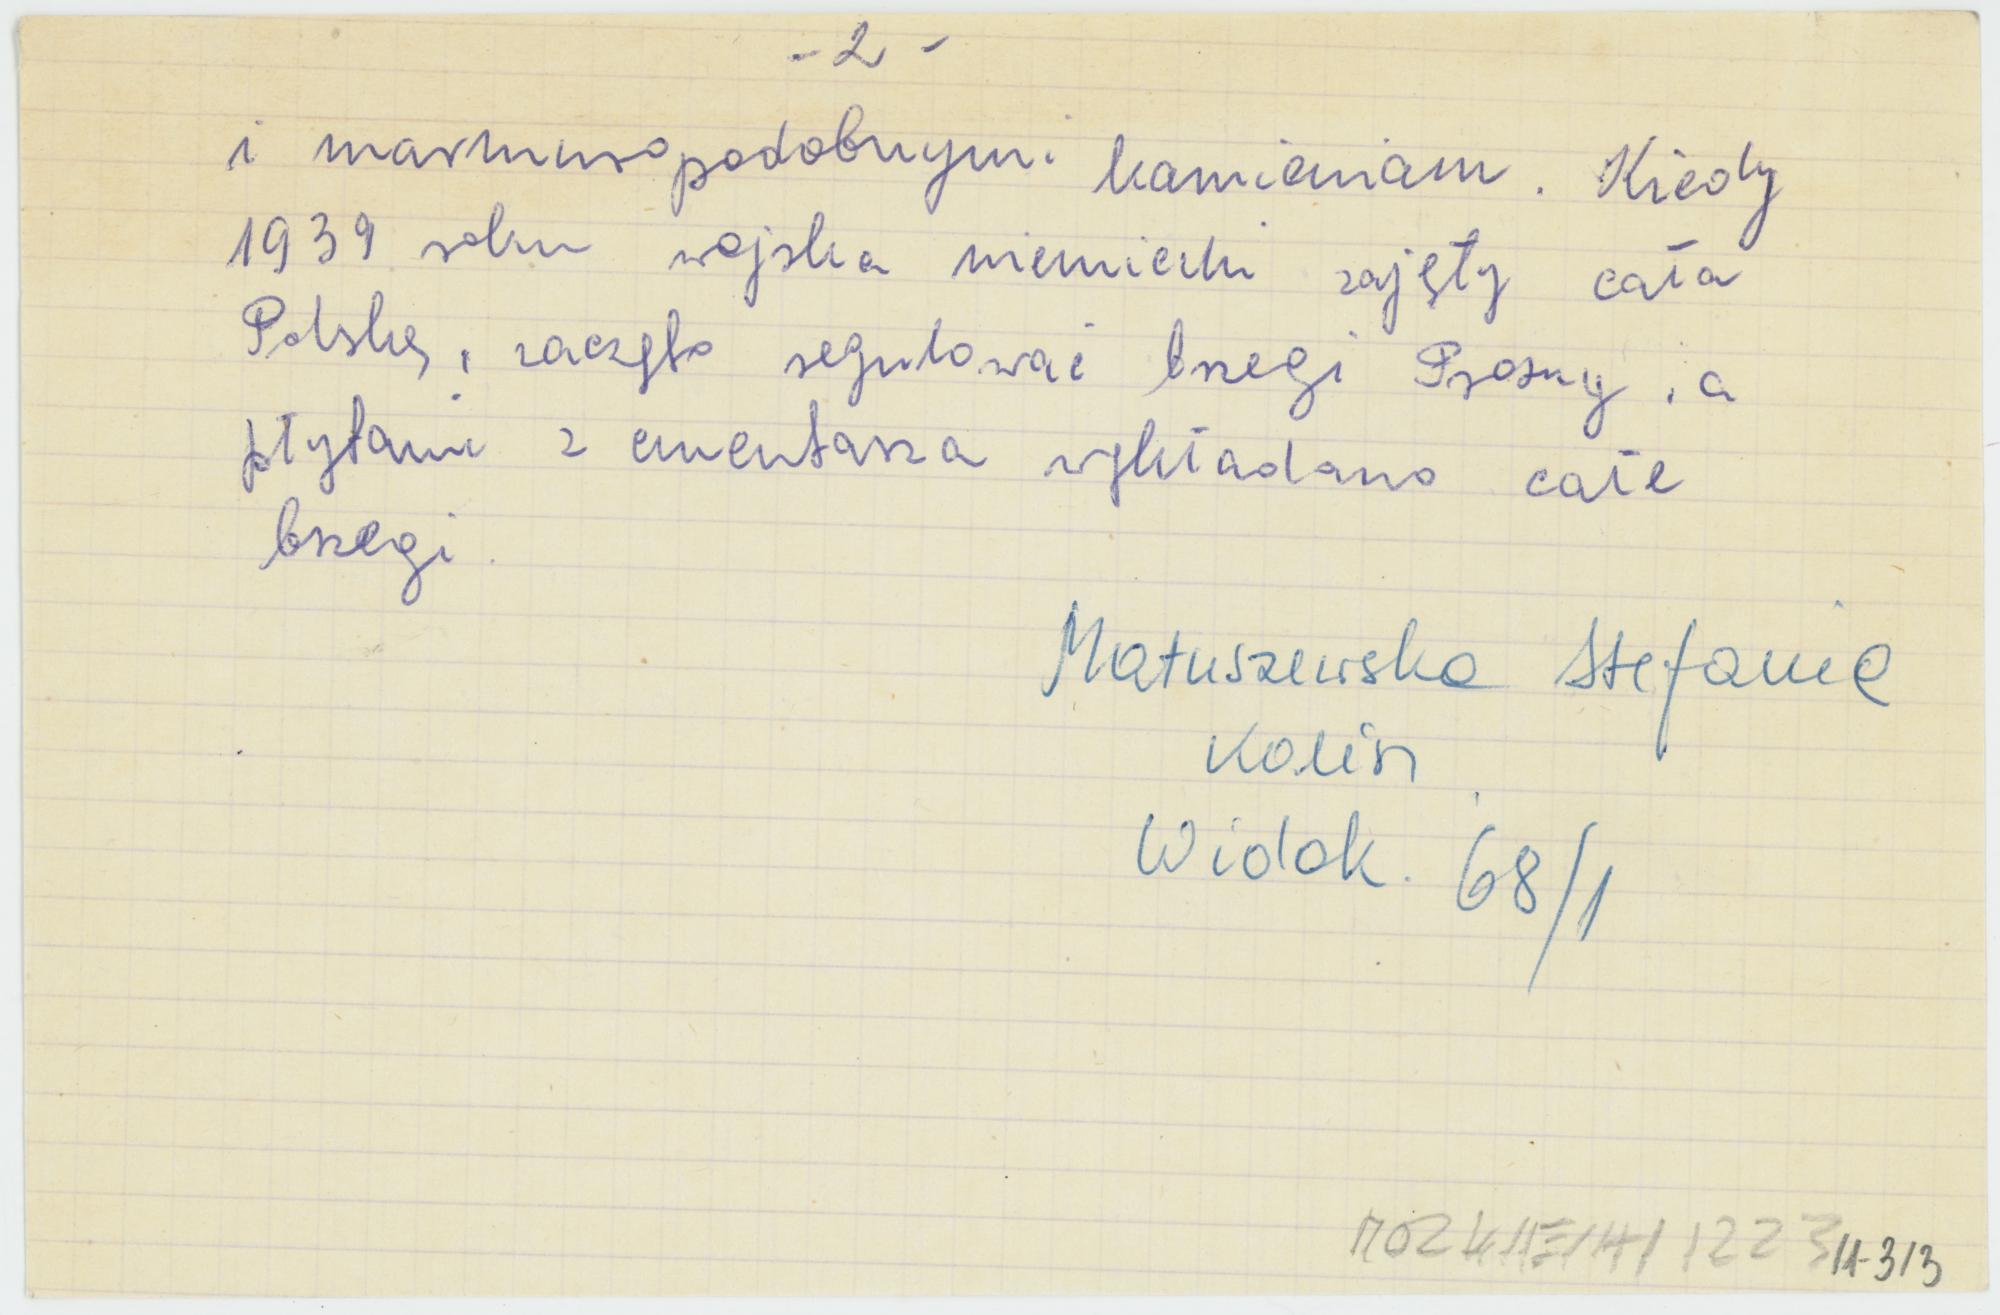 - 2 -
i marmuropodobnymi kamieniam. Kiedy
1939 roku wojska niemiecki zajęty cała
Polskę, zaczęto regulować brzegi Prosny, a
płytami z cmentarza wykładano całe
brzegi.
Matuszewska Stefania
Kalisz
Widok. 68/1
1223
/4-3/3